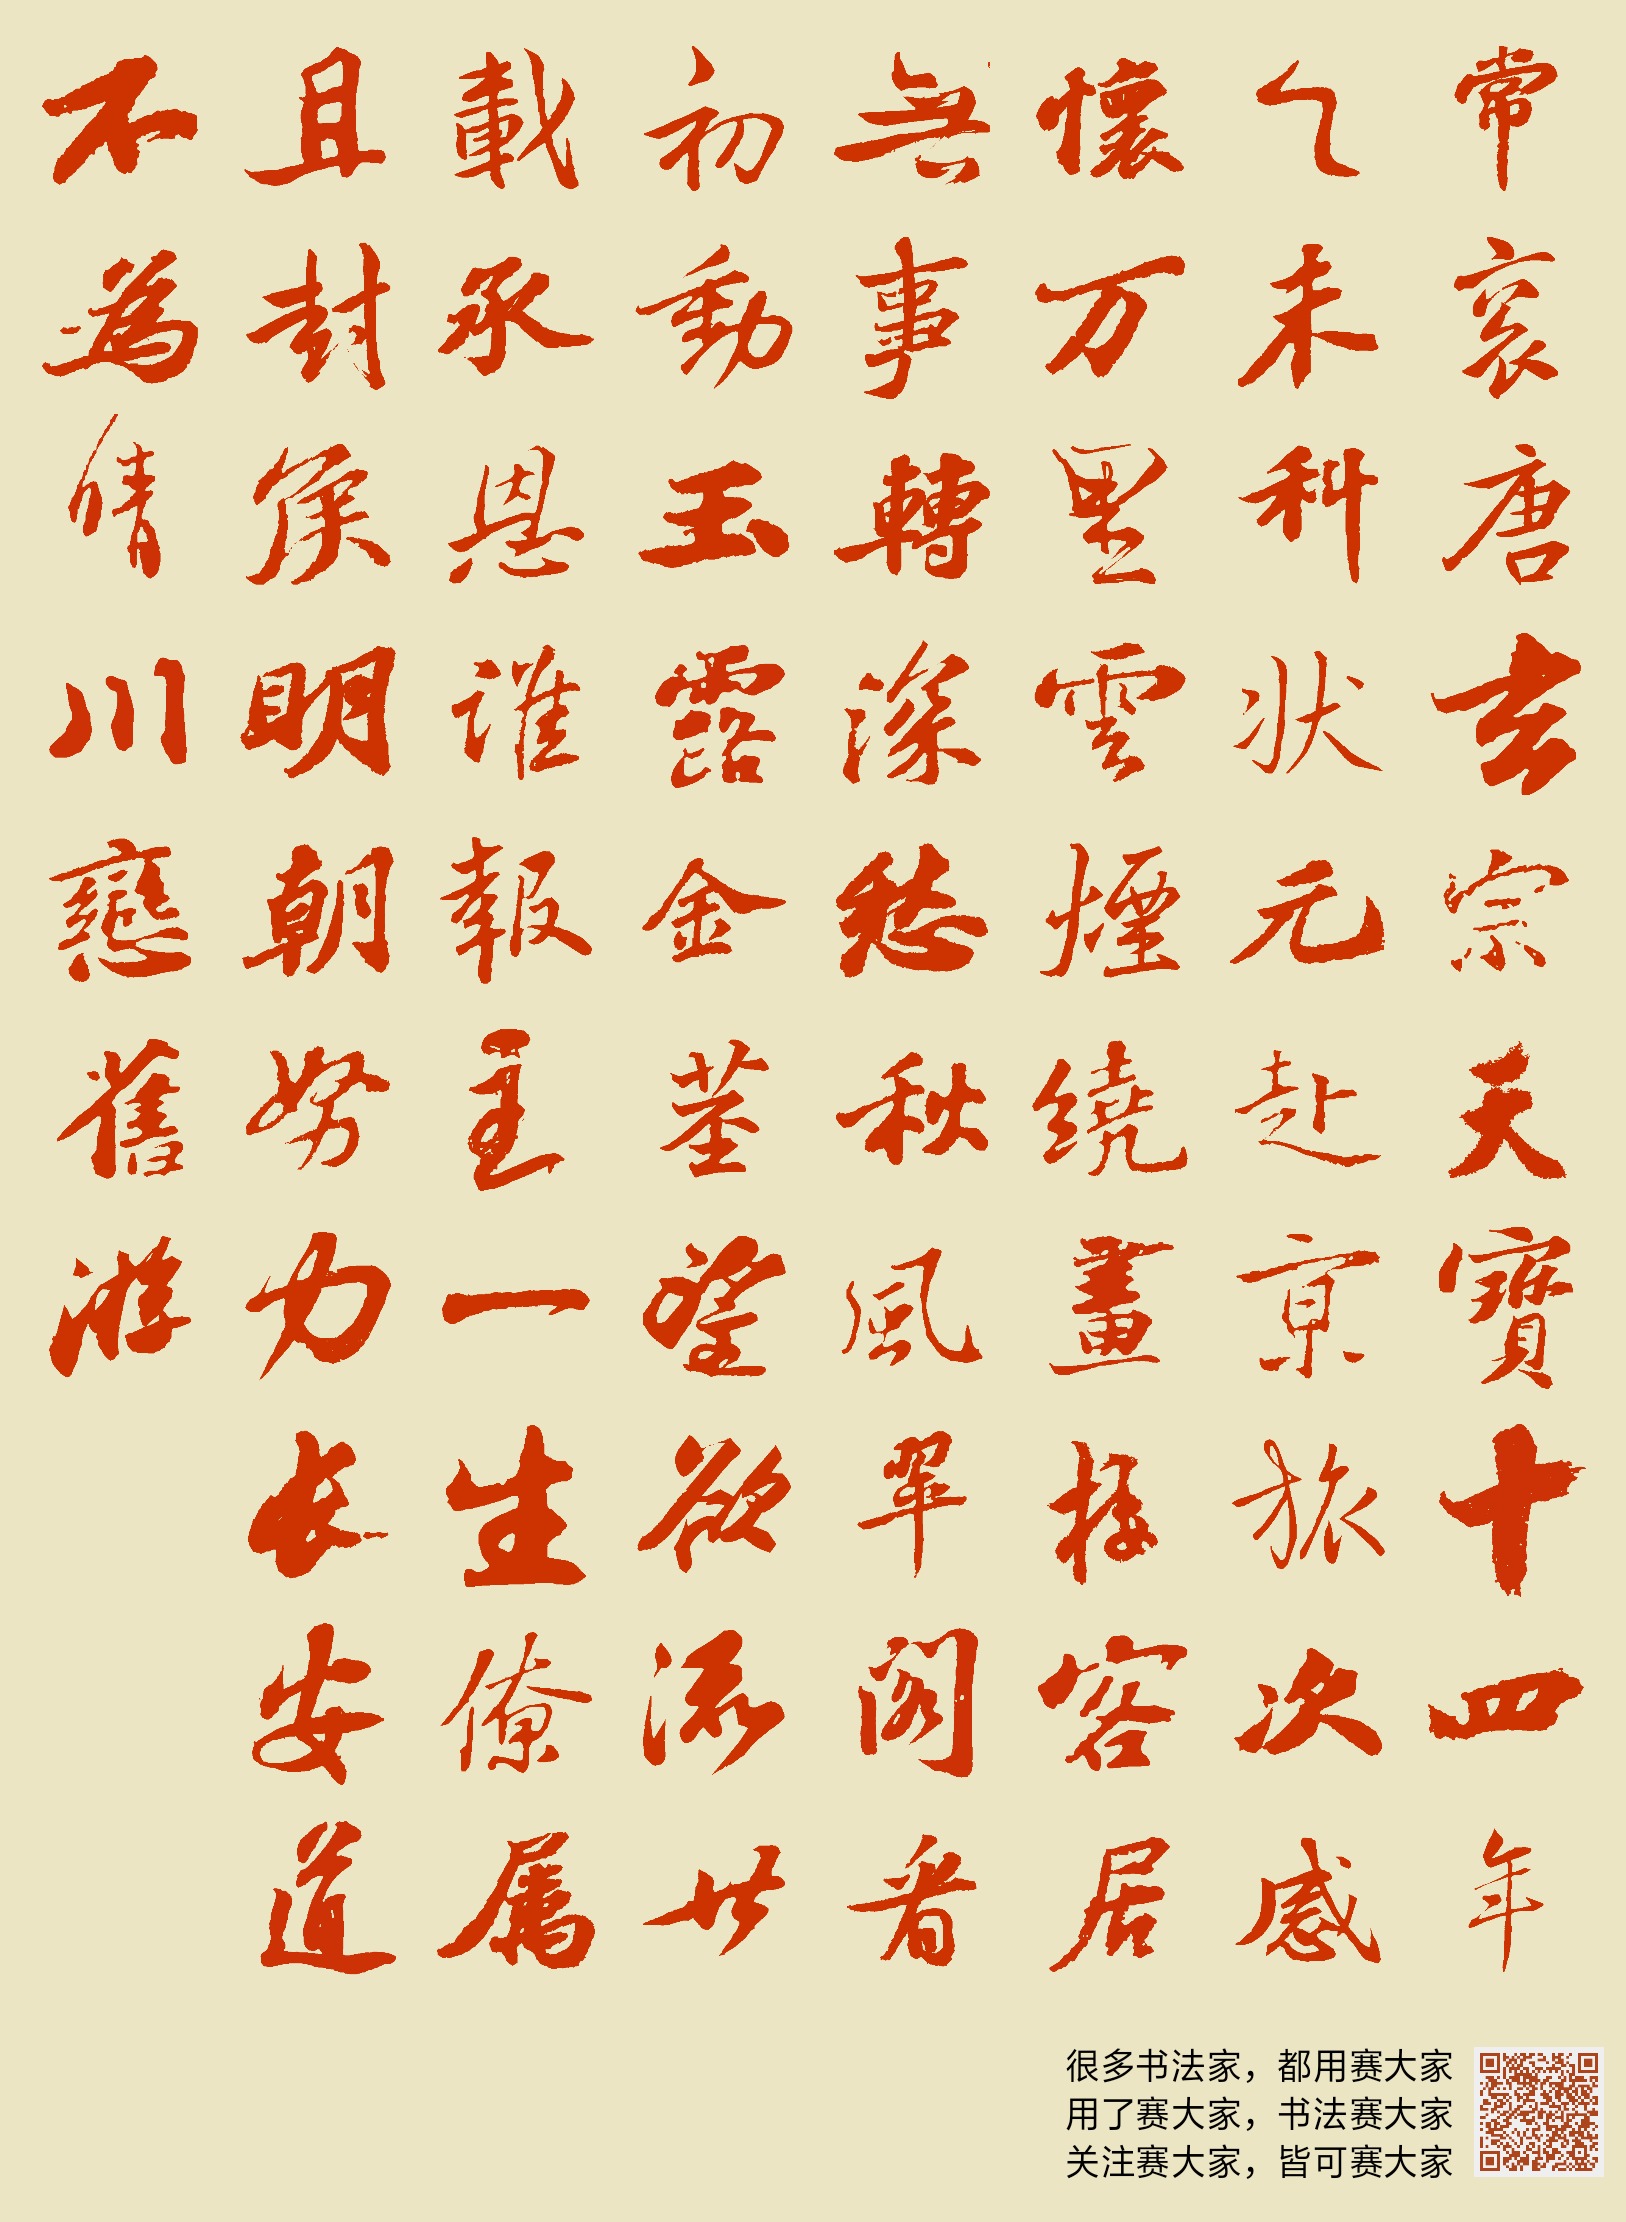 常衮唐玄宗天寶十四年
乙未科状元赴京旅次感
懷万里雲煙繞畫楼客居
無事轉深愁秋風翠閣看
初動玉露金茎望欲流廿
載承恩誰報主一生僚属
且封侯明朝努力长安道
不為晴川戀舊游
很多书法家，都用赛大家
用了赛大家，书法赛大家
关注赛大家，皆可赛大家